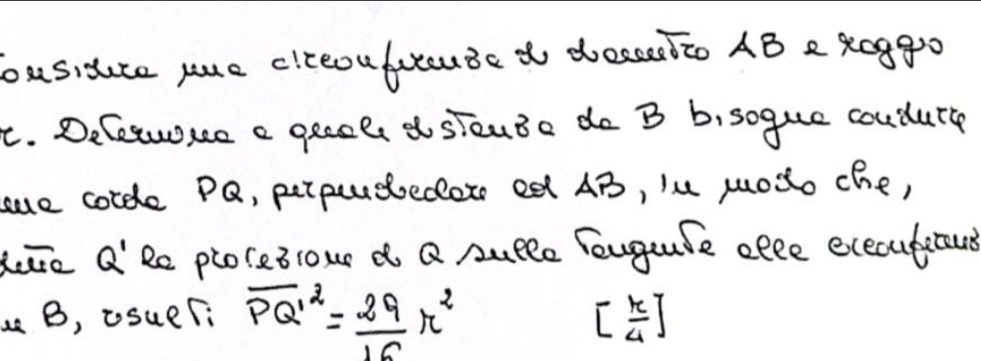 onsidera una circonferenza di diametro AB e raggio
r. Determina a quale distanza da B bisogna condurre
una corda PQ, perpendicolare ad AB, in modo che,
detta Q' la proiezione di Q sulla tangente alla circonferenz
in B, risulti PQ'² = 29/16 r² [r/4]